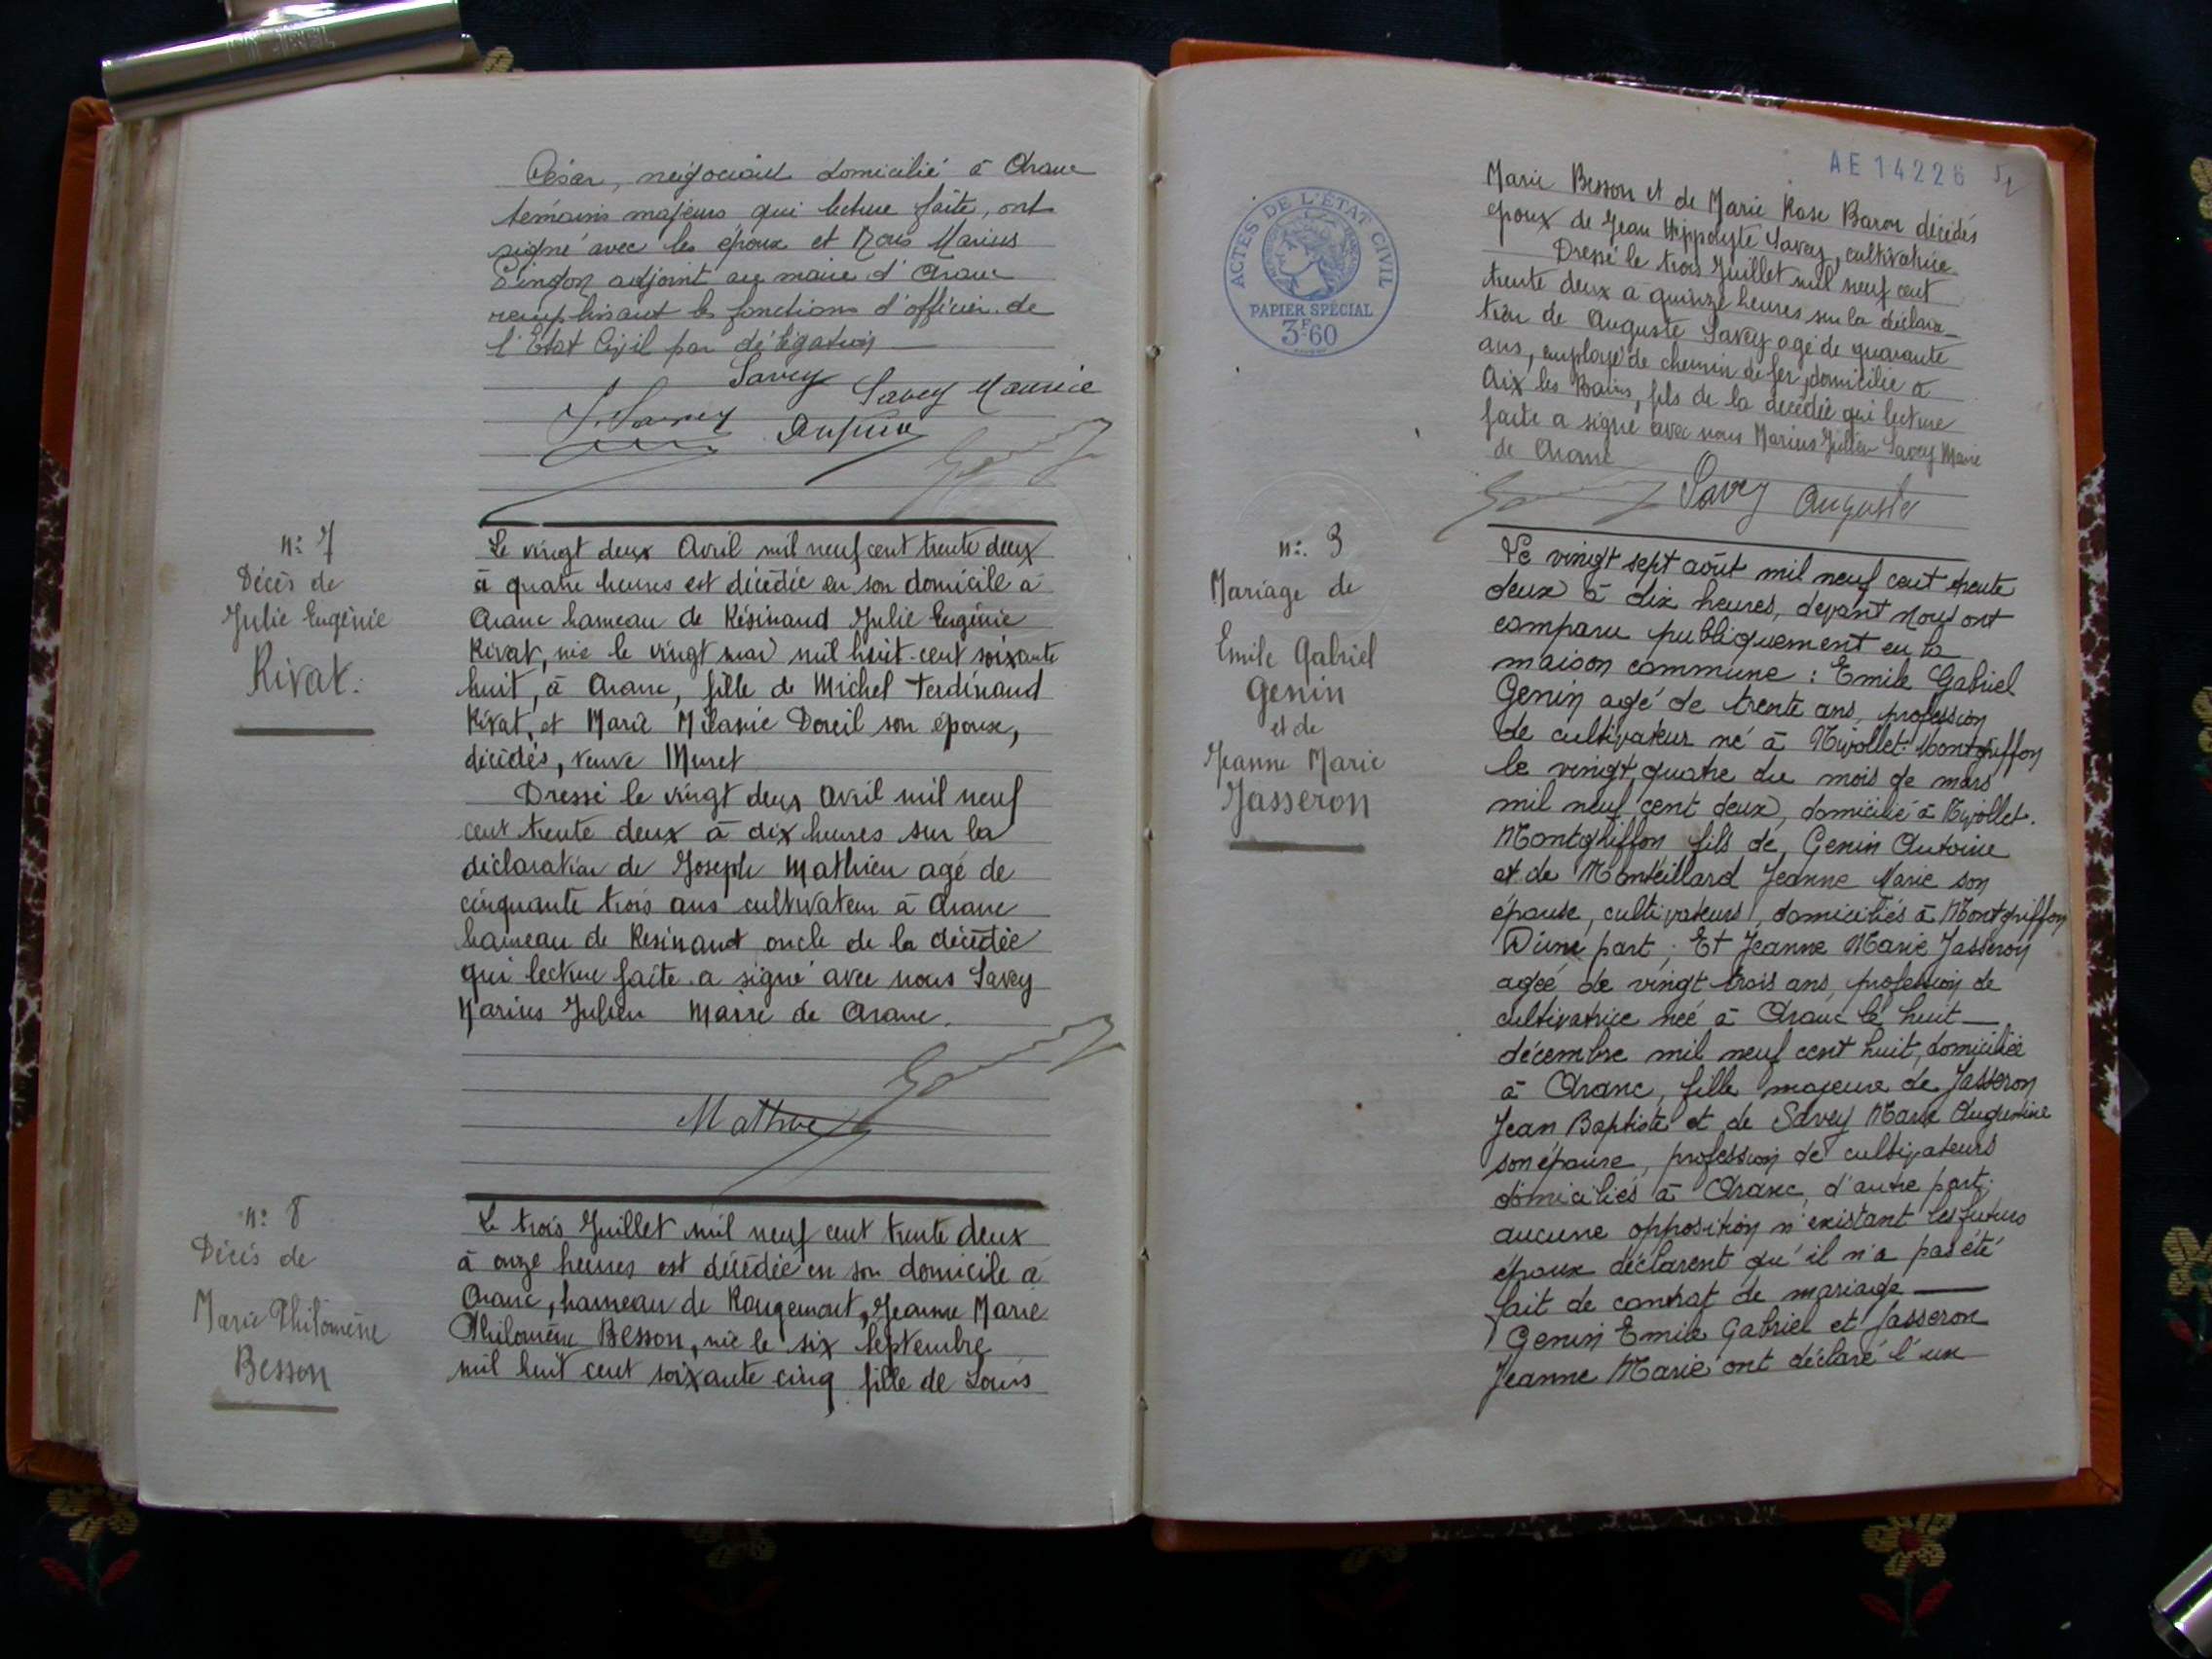 César, négociant domicilié à Aranc
témoins majeurs qui lecture faite, ont
signé avec les époux et Nous Marius
adjoint au maire d'Aranc
remplissant les fonctions d'officier de
l'Etat Civil par délégation
Savey
Savey Maurice
J. Savey
n: 7
Décès de
Julie Eugénie
Rivat.
Le vingt deux Avril mil neuf cent trente deux
à quatre heures est décédée en son domicile à
Aranc hameau de Résinand Julie Eugénie
Rivat, née le vingt mil huit-cent soixante
huit, à Aranc, fille de Michel Ferdinand
Rivat, et Marie Mélanie Doreil son épouse,
décédés, veuve Muret
Dressé le vingt deux Avril mil neuf
cent trente deux à dix heures sur la
déclaration de Joseph Mathieu agé de
cinquante trois ans cultivateur à Aranc
hameau de Résinand oncle de la décédée
qui lecture faite a signé avec nous Savey
Marius Julien Maire de Aranc.
Mathieu
n: 8
Décès de
Marie Philomène
Besson
Le trois Juillet mil neuf cent trente deux
à onze heures est décédée en son domicile à
Aranc, hameau de Rougemont, Jeanne Marie
Philomène Besson, née le six Septembre
mil huit cent soixante cinq fille de Louis
AE 14226
ACTES DE L'ÉTAT CIVIL
PAPIER SPÉCIAL
3F60
Marie Besson et de Marie Rose Baron décédés
époux de Jean Hippolyte Savey, cultivatrice.
Dressé le trois Juillet mil neuf cent
trente deux à quinze heures sur la déclara-
tion de Auguste Savey agé de quarante
ans, employé de chemin de fer, domicilié à
Aix les Bains, fils de la décédée qui lecture
faite a signé avec nous Marius Julien Savey Maire
de Aranc
Savey Auguste
n:. 3
Mariage de
Emile Gabriel
Genin
et de
Jeanne Marie
Jasseron
Le vingt sept août mil neuf cent trente
deux à dix heures, devant Nous ont
comparu publiquement en la
maison commune : Emile Gabriel
Genin agé de trente ans, profession
de cultivateur né à Nivollet-Montgriffon
le vingt quatre du mois de mars
mil neuf cent deux, domicilié à Nivollet-
Montgriffon fils de Genin Antoine
et de Montéillard Jeanne Marie son
épouse, cultivateurs, domiciliés à Montgriffon
D'une part ; Et Jeanne Marie Jasseron
agée de vingt trois ans, profession de
cultivatrice née à Aranc le huit
décembre mil neuf cent huit, domiciliée
à Aranc, fille majeure de Jasseron
Jean Baptiste et de Savey Marie Augustine
son épouse, profession de cultivateurs
domiciliés à Aranc, d'autre part.
aucune opposition n'existant les futurs
époux déclarent qu'il n'a pas été
fait de contrat de mariage
Genin Emile Gabriel et Jasseron
Jeanne Marie ont déclaré l'un